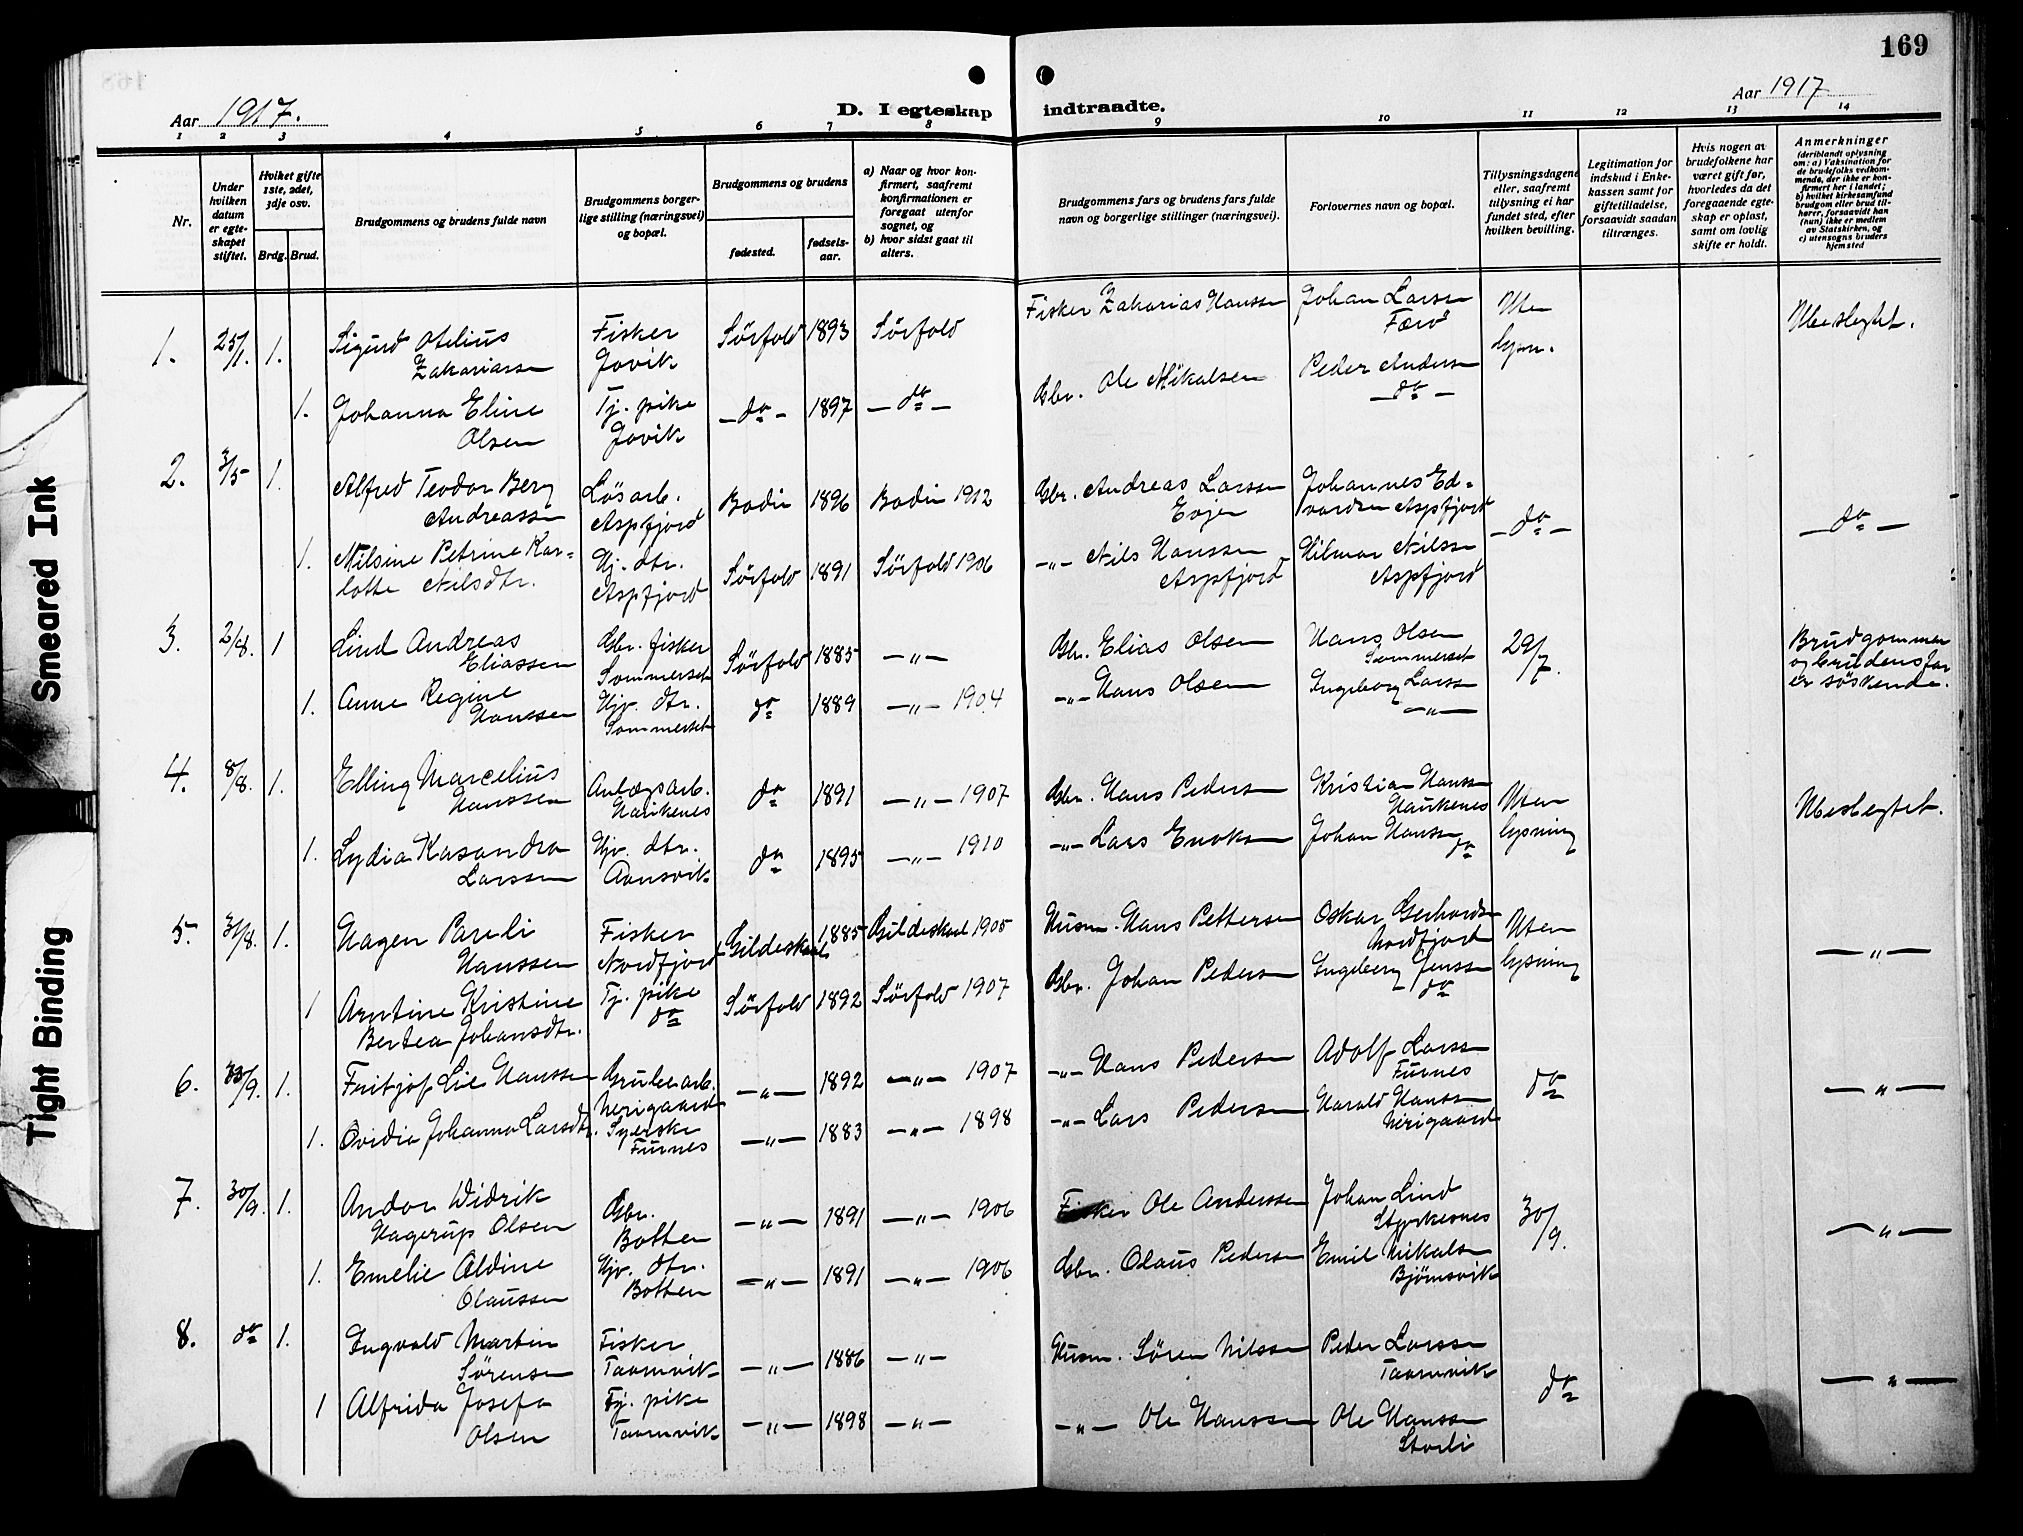 169
Aar 1917.
D. I egteskap indtraadte.
Aar 1917
1 2 3 4 5 6 7 8 9 10 11 12 13 14
Nr.
Under hvilken datum er egte-skapet stiftet.
Hvilket gifte 1ste, 2det, 3dje osv.
Brdg. Brud.
Brudgommens og brudens fulde navn
Brudgommens borger-lige stilling (næringsvei) og bopæl.
Brudgommens og brudens
fødested.
fødsels-aar.
a) Naar og hvor kon-firmert, saafremt konfirmationen er foregaat utenfor sognet, og
b) hvor sidst gaat til alters.
Brudgommens fars og brudens fars fulde navn og borgerlige stillinger (næringsvei).
Forlovernes navn og bopæl.
Tillysningsdagene eller, saafremt tillysning ei har fundet sted, efter hvilken bevilling.
Legitimation for indskud i Enke-kassen samt for giftetilladelse, forsaavidt saadan tiltrænges.
Hvis nogen av brudefolkene har været gift før, hvorledes da det foregaaende egte-skap er opløst, samt om lovlig skifte er holdt.
Anmerkninger
(deriblandt oplysning om: a) Vaksination for de brudefolks vedkom-mende, der ikke er kon-firmert her i landet; b) hvilket kirkesamfund brudgom eller brud til-hører, forsaavidt han (hun) ikke er medlem av Statskirken, og c) utensogns bruders hjemsted
1. 25/1. 1. Sigurd Otelius Zakariassen Fisker Jovik Sørfold 1893 Sørfold Fisker Zakarias Hanssen Johan Larsen Færø Uten lysn. Ubeslegtet.
1. Johanna Eline Olsen Tj. pike Jovik - do - 1897 - do - Gbr. Ole Mikalsen Peder Anders - do -
2. 3/5 1. Alfred Teodor Berg Andreassen Løsarb. Aspfjord Bodin 1896 Bodin 1912 Gbr. Andreas Larssen Evjen Johannes Ed-vardsen Aspfjord - do - - do -
1. Nilsine Petrine Kar-lotte Nilsdtr. Hj. dtr. Aspfjord Sørfold 1891 Sørfold 1906 -"- Nils Hanssen Aspfjord Hilmar Nilssen Aspfjord
3. 2/8. 1 Lind Andreas Eliassen Gbr. fisker Sommerset Sørfold 1885 -"- Gbr. Elias Olsen Hans Olsen Sommerset 29/7. Brudgommen og brudens far er søskende.
1. Anne Regine Hanssen Hjv. dtr. Sommerset do 1889 -"- 1904 -"- Hans Olsen Ingeborg Larssen -"-
4. 8/8. 1. Elling Marcelius Hanssen Anlægsarb. Haukenes do 1891 -"- 1907 Gbr. Hans Pedersen Kristian Hanssen Haukenes Uten lysning Ubeslegtet.
1. Lydia Kasandra Larssen Hjv. dtr. Aansvik do 1895 -"- 1910 -"- Lars Enoksen Johan Hanssen do
5. 31/8. 1. Hagen Pareli Hanssen Fisker Nordfjord Gildeskaal 1885 Gildeskaal 1905 Husm. Hans Pettersen Oskar Gerhardsen Nordfjord Uten lysning -"-
1 Arntine Kristine Bertea Johansdtr. Tj. pike do Sørfold 1892 Sørfold 1907 Gbr. Johan Pedersen Engeberg Jenssen do
6. /9. 1. Fritjof Lie Hanssen Grubearb. Nerigaard -"- 1892 -"- 1907 -"- Hans Pedersen Adolf Larssen Furnes do -"-
1. Ovidia Johanna Larsdtr. Syerske Furnes -"- 1883 -"- 1898 -"- Lars Pedersen Harald Hanssen Nerigaard
7. 30/9. 1. Andor Widrik Hagerup Olsen Gbr. Botten -"- 1891 -"- 1906 Fisker Ole Anderssen Johan Lind Styrkesnes 30/9. -"-
1. Emelie Aldine Olaussen Hjv. dtr. Botten -"- 1891 -"- 1906 Gbr. Olaus Pedersen Emil Mikalsen Bjørnsvik
8. do 1. Ingvald Martin Sørensen Fisker Taarnvik -"- 1886 -"- Husm. Søren Nilssen Peder Larssen Taarnvik do -"-
1 Alfrida Josefa Olsen Tj. pike Taarnvik -"- 1898 -"- -"- Ole Hanssen Ole Hanssen Storli
Smeared Ink
Tight Binding